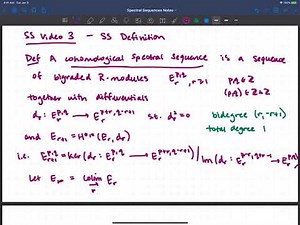 Spectral Sequences Notes
SS Video 3 - SS Definition
Def A cohomological spectral sequence is a sequence
of bigraded R-modules E_r^{p,q}, r≥1 p,q ∈ Z
(p,q) ∈ Z×Z
together with differentials
d_r: E_r^{p,q} → E_r^{p+r,q-r+1} s.t. d_r^2=0 bidegree (r,-r+1)
total degree 1
and E_{r+1} = H^{*,*}(E_r, d_r)
i.e. E_{r+1}^{p,q} = ker(d_r: E_r^{p,q} → E_r^{p+r,q-r+1}) / Im(d_r: E_r^{p-r,q+r-1} → E_r^{p,q})
Let E_∞ = colim E_r
r